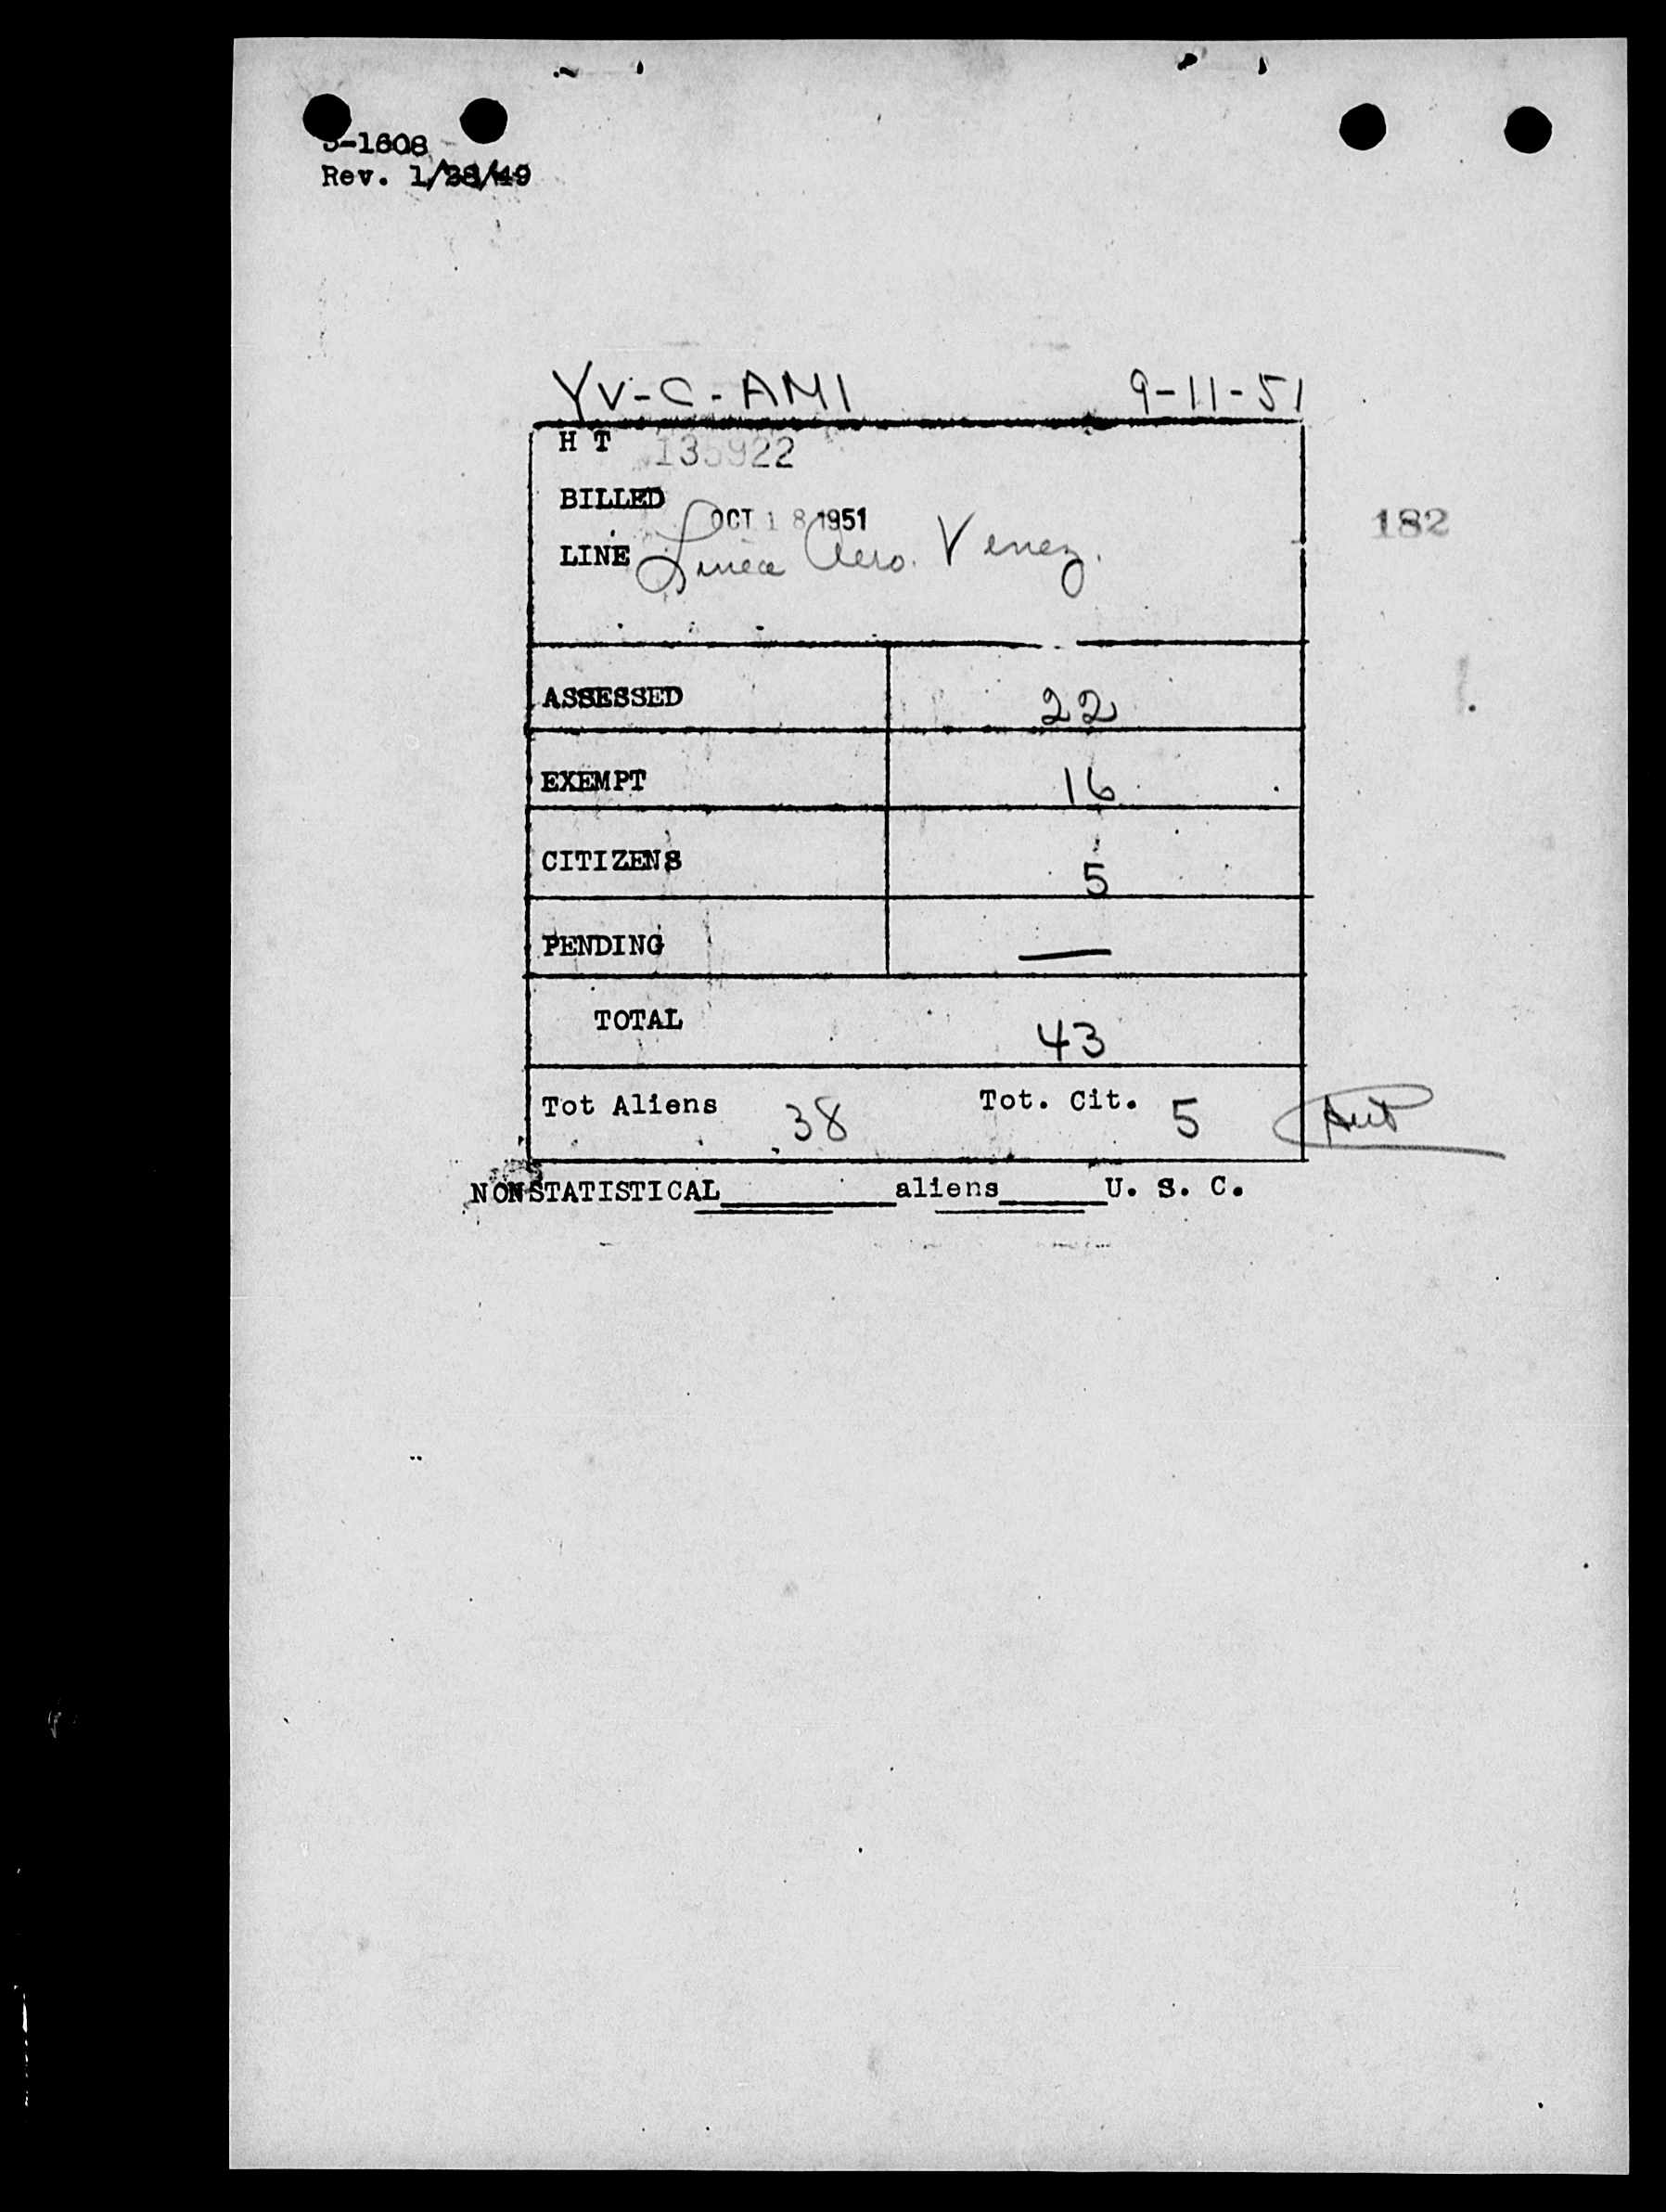 -1608
Rev. 1/28/49
YV-C-AMI 9-11-51
H T 135922
BILLED OCT 18 1951
LINE Linea Aero. Venez.
182
ASSESSED 22
EXEMPT 16
CITIZENS 5
PENDING —
TOTAL 43
Tot Aliens 38 Tot. Cit. 5
NONSTATISTICAL________aliens_____U. S. C.